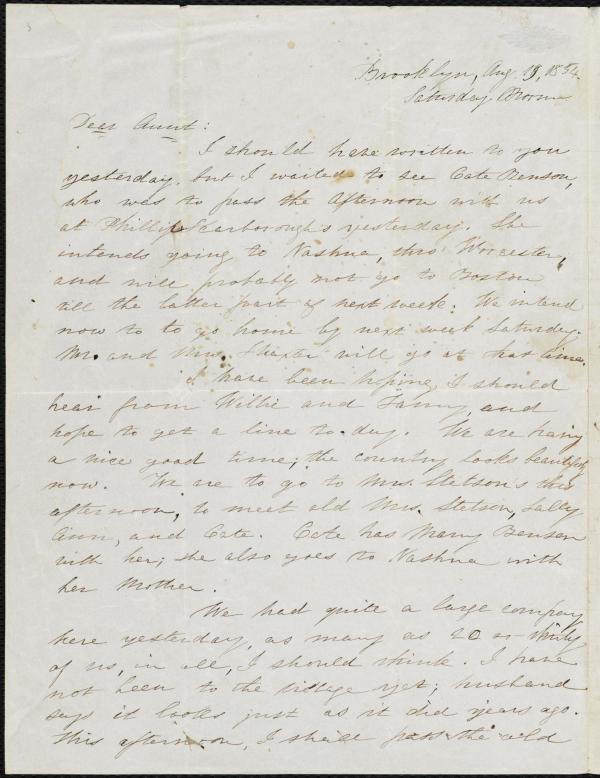 Brooklyn, Aug. 19, 1854.
Saturday Morn.
Dear Aunt:
I should have written to you
yesterday, but I waited to see Cate Benson,
who was to pass the afternoon with us
at Phillip Scarborough's yesterday. She
intends going to Nashua, thro' Worcester,
and will probably not go to Boston
till the latter part of next week. We intend
now to to go home by next week Saturday.
Mr. and Mrs. Thaxter will go at that time.
I have been hoping I should
hear from Willie and Fanny, and
hope to get a line to-day. We are having
a nice good time; the country looks beautifully
now. We are to go to Mrs. Stetson's this
afternoon, to meet old Mrs. Stetson, Sally
Ann, and Cate. Cate has Mary Benson
with her; she also goes to Nashua with
her Mother.
We had quite a large company
here yesterday, as many as 20 or thirty
of us, in all, I should think. I have
not been to the village yet; husband
says it looks just as it did years ago.
This afternoon, I shall pass the old